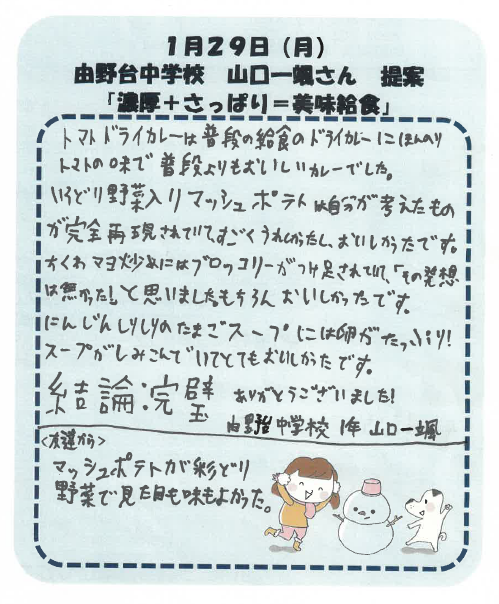 1月29日（月）
由野台中学校　山口一颯さん　提案
「濃厚＋さっぱり＝美味給食」
トマトドライカレーは普段の給食のドライカレーにほんのり
トマトの味で普段よりもおいしいカレーでした。
いろどり野菜入りマッシュポテトは自分が考えたもの
が完全再現されていて、すごくうれしかったし、おいしかったです。
ちくわマヨ炒めにはブロッコリーがつけ足されていて、「その発想
は無かった!」と思いました。もちろんおいしかったです。
にんじんしりしりのたまごスープには卵がたっぷり!
スープがしみこんでいてとてもおいしかったです。
結論:完璧 ありがとうございました!
由野台中学校 1年 山口一颯
<友達から>
マッシュポテトが彩どり
野菜で見た目も味もよかった。